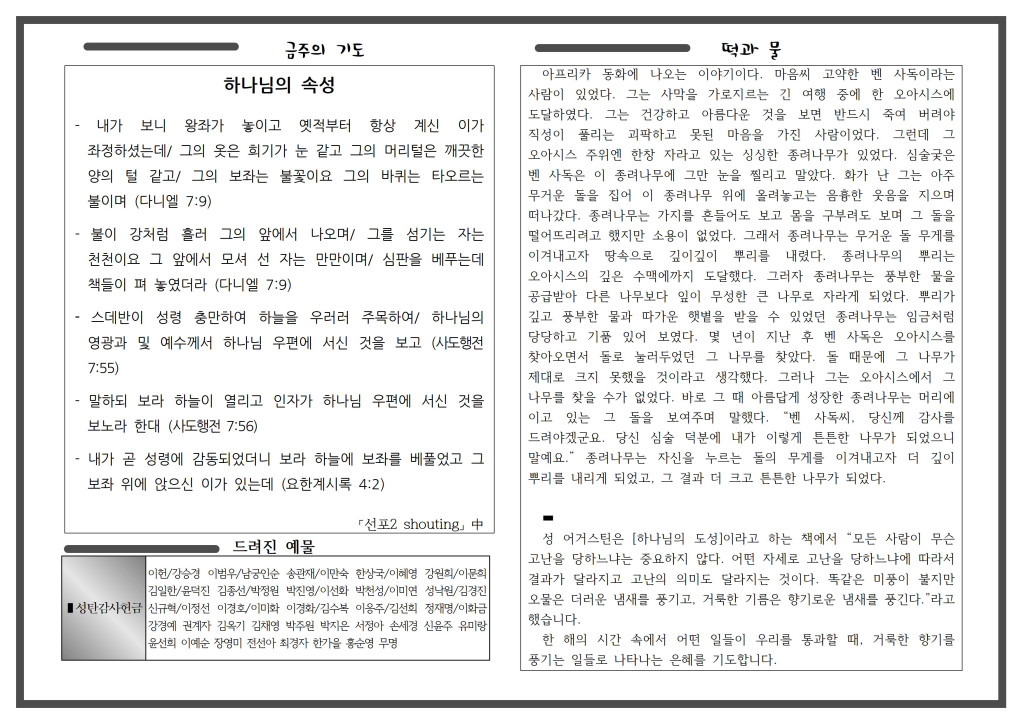 금주의 기도
하나님의 속성
- 내가 보니 왕좌가 놓이고 옛적부터 항상 계신 이가
좌정하셨는데/ 그의 옷은 희기가 눈 같고 그의 머리털은 깨끗한
양의 털 같고/ 그의 보좌는 불꽃이요 그의 바퀴는 타오르는
불이며 (다니엘 7:9)
- 불이 강처럼 흘러 그의 앞에서 나오며/ 그를 섬기는 자는
천천이요 그 앞에서 모셔 선 자는 만만이며/ 심판을 베푸는데
책들이 펴 놓였더라 (다니엘 7:9)
- 스데반이 성령 충만하여 하늘을 우러러 주목하여/ 하나님의
영광과 및 예수께서 하나님 우편에 서신 것을 보고 (사도행전
7:55)
- 말하되 보라 하늘이 열리고 인자가 하나님 우편에 서신 것을
보노라 한대 (사도행전 7:56)
- 내가 곧 성령에 감동되었더니 보라 하늘에 보좌를 베풀었고 그
보좌 위에 앉으신 이가 있는데 (요한계시록 4:2)
「선포2 shouting」中
드려진 예물
성탄감사헌금
이헌/강승경 이범우/남궁인순 송관재/이만숙 한상국/이혜영 강원희/이문희
김일한/윤덕진 김종선/박정원 박진영/이선화 박천성/이미연 성낙원/김경진
신규혁/이정선 이경호/이미화 이경화/김수복 이응주/김선희 정재명/이화금
강경예 권계자 김옥기 김채영 박주원 박지은 서정아 손세경 신윤주 유미랑
윤선희 이예순 장영미 전선아 최경자 한가을 홍순영 무명
떡과 물
아프리카 동화에 나오는 이야기이다. 마음씨 고약한 벤 사독이라는
사람이 있었다. 그는 사막을 가로지르는 긴 여행 중에 한 오아시스에
도달하였다. 그는 건강하고 아름다운 것을 보면 반드시 죽여 버려야
직성이 풀리는 괴팍하고 못된 마음을 가진 사람이었다. 그런데 그
오아시스 주위엔 한창 자라고 있는 싱싱한 종려나무가 있었다. 심술궂은
벤 사독은 이 종려나무에 그만 눈을 찔리고 말았다. 화가 난 그는 아주
무거운 돌을 집어 이 종려나무 위에 올려놓고는 음흉한 웃음을 지으며
떠나갔다. 종려나무는 가지를 흔들어도 보고 몸을 구부려도 보며 그 돌을
떨어뜨리려고 했지만 소용이 없었다. 그래서 종려나무는 무거운 돌 무게를
이겨내고자 땅속으로 깊이깊이 뿌리를 내렸다. 종려나무의 뿌리는
오아시스의 깊은 수맥에까지 도달했다. 그러자 종려나무는 풍부한 물을
공급받아 다른 나무보다 잎이 무성한 큰 나무로 자라게 되었다. 뿌리가
깊고 풍부한 물과 따가운 햇볕을 받을 수 있었던 종려나무는 임금처럼
당당하고 기품 있어 보였다. 몇 년이 지난 후 벤 사독은 오아시스를
찾아오면서 돌로 눌러두었던 그 나무를 찾았다. 돌 때문에 그 나무가
제대로 크지 못했을 것이라고 생각했다. 그러나 그는 오아시스에서 그
나무를 찾을 수가 없었다. 바로 그 때 아름답게 성장한 종려나무는 머리에
이고 있는 그 돌을 보여주며 말했다. “벤 사독씨, 당신께 감사를
드려야겠군요. 당신 심술 덕분에 내가 이렇게 튼튼한 나무가 되었으니
말예요.” 종려나무는 자신을 누르는 돌의 무게를 이겨내고자 더 깊이
뿌리를 내리게 되었고, 그 결과 더 크고 튼튼한 나무가 되었다.
성 어거스틴은 [하나님의 도성]이라고 하는 책에서 “모든 사람이 무슨
고난을 당하느냐는 중요하지 않다. 어떤 자세로 고난을 당하느냐에 따라서
결과가 달라지고 고난의 의미도 달라지는 것이다. 똑같은 미풍이 불지만
오물은 더러운 냄새를 풍기고, 거룩한 기름은 향기로운 냄새를 풍긴다.”라고
했습니다.
한 해의 시간 속에서 어떤 일들이 우리를 통과할 때, 거룩한 향기를
풍기는 일들로 나타나는 은혜를 기도합니다.